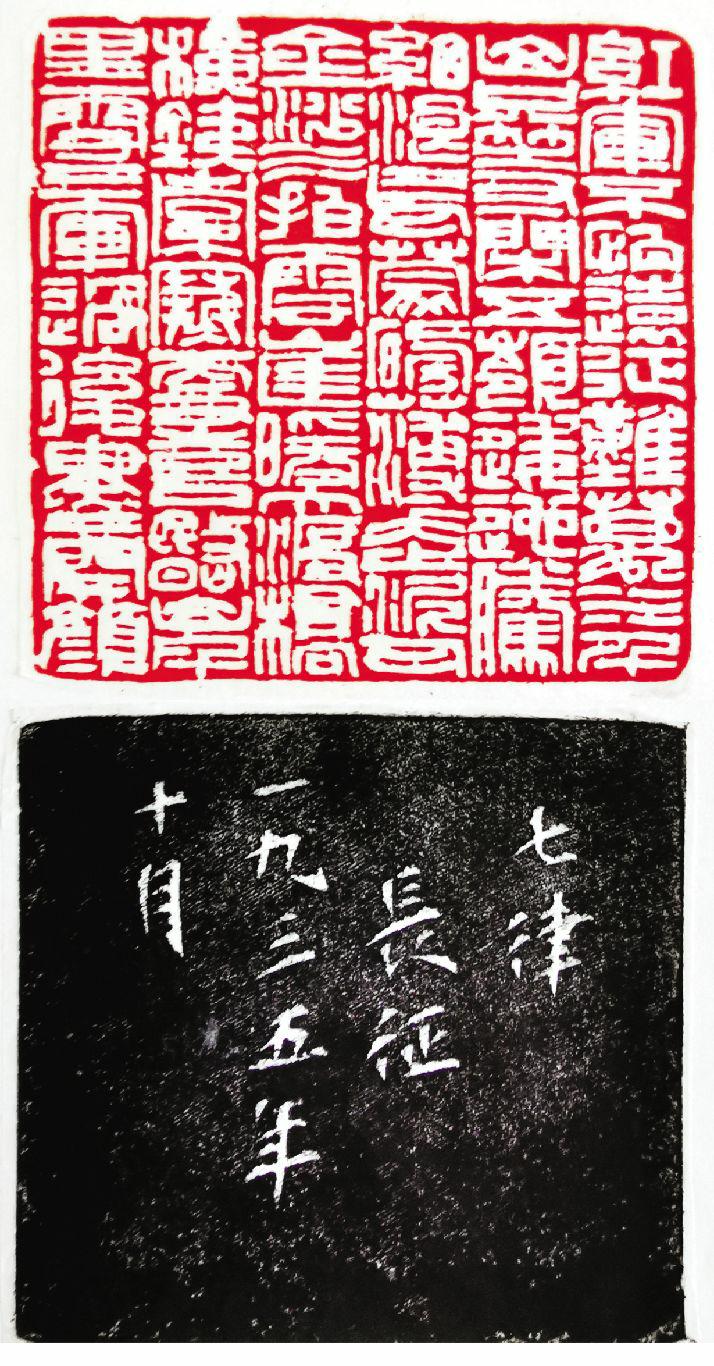 紅軍不怕遠征難萬水千
山只等閒五嶺逶迤騰
細浪烏蒙磅礴走泥丸
金沙水拍雲崖暖大渡橋
橫鐵索寒更喜岷山千
里雪三軍過後盡開顏
七律
長征
一九三五年
十月